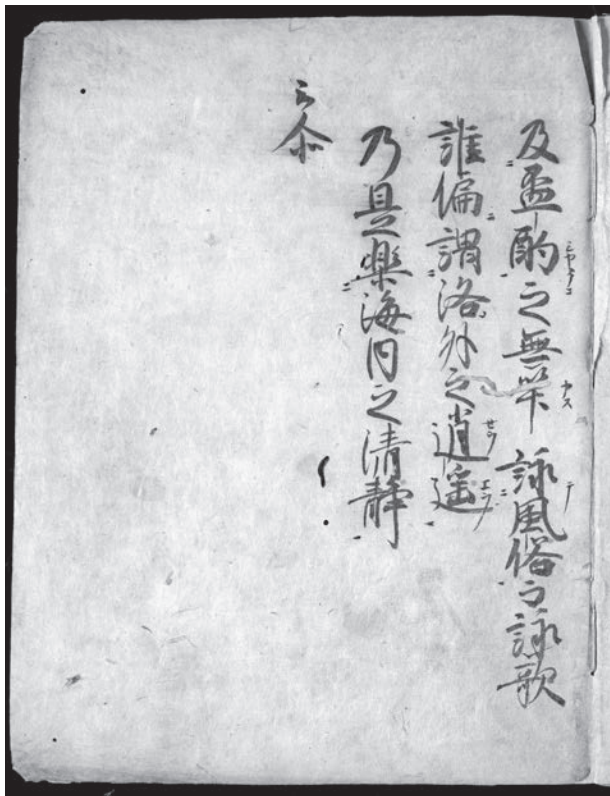 及盃酌之無筭詠風俗之詠歌
誰偏謂洛外之逍遥
乃是楽海内之清静
云尒